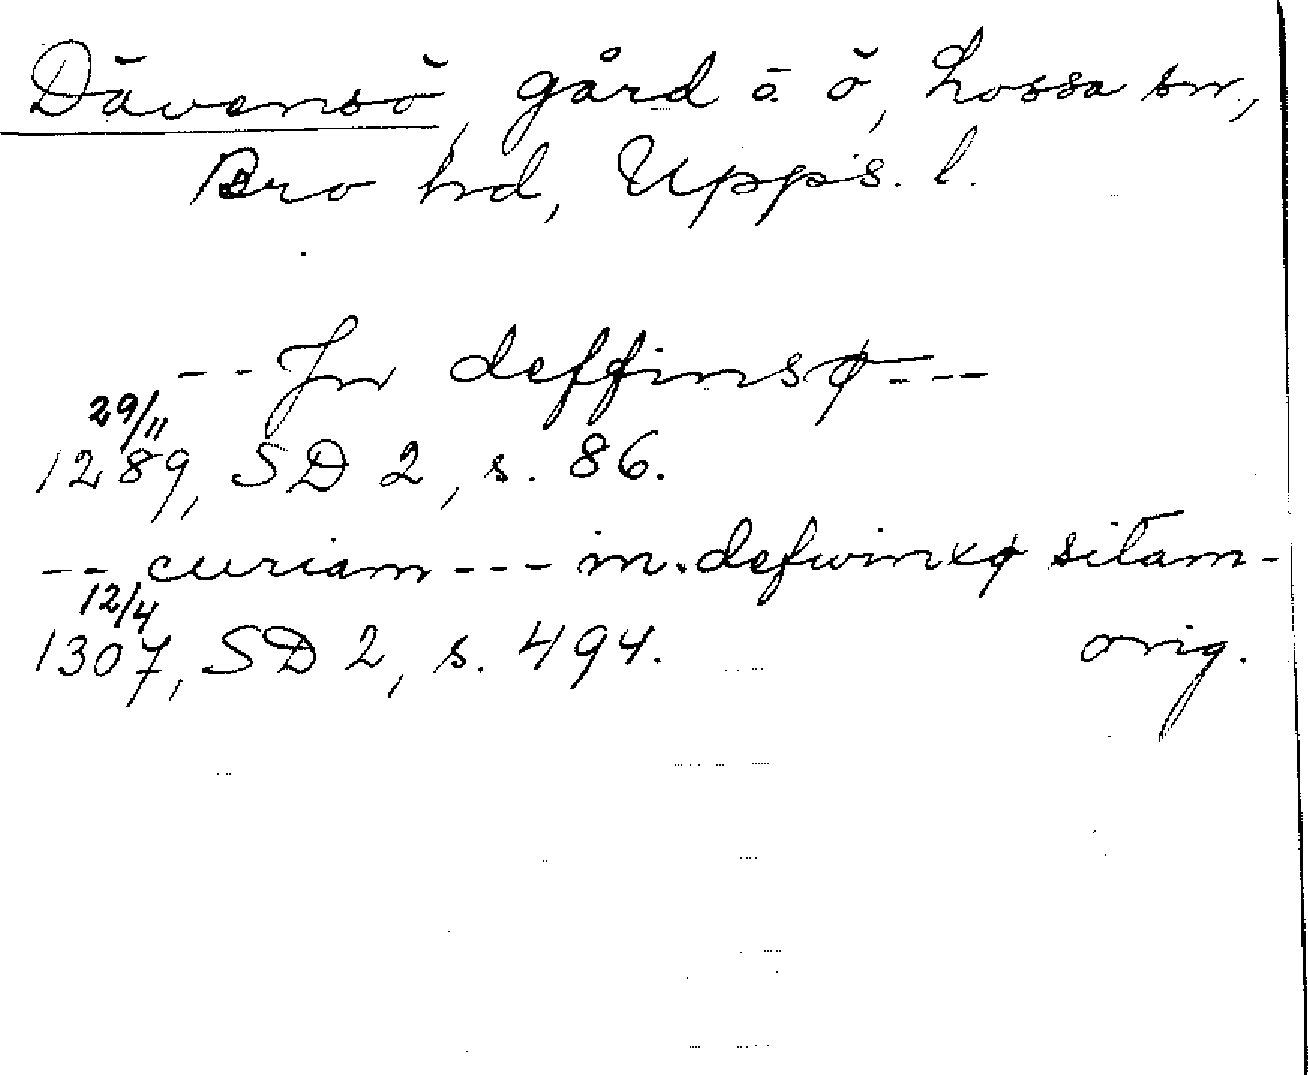 Dävensö, gård å ö, Lossa sn,
Bro hd, Upps. l.
-- Jn deffinsø ---
29/11
1289, SD 2, s. 86.
-- curiam --- in. defwinxø sitam -
12/4
1307, SD 2, s. 494. orig.